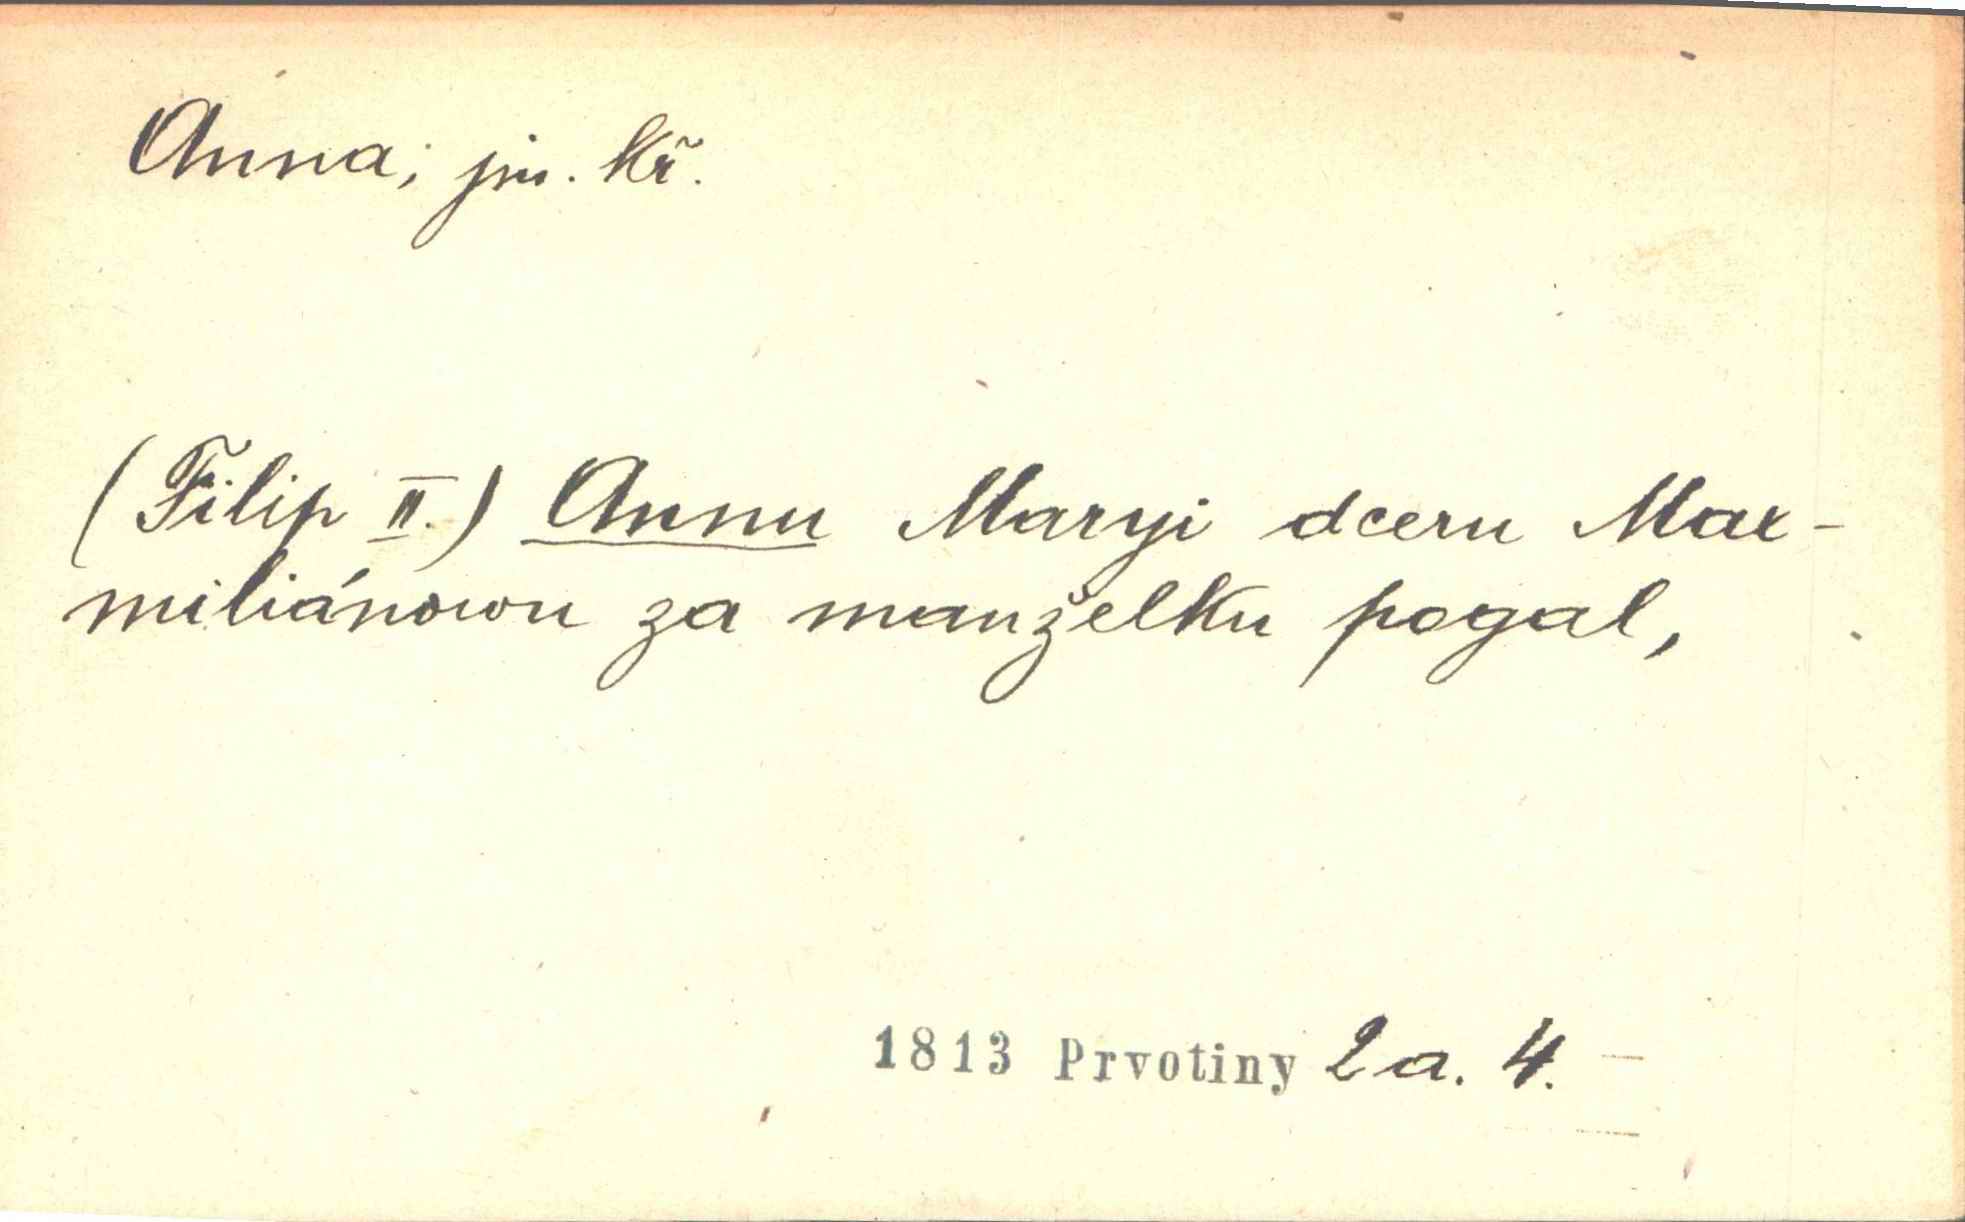 Anna; jm. kř.
(Filip II.) Annu Maryi dceru Max-
miliánowu za manželku pogal,
1813 Prvotiny 2a. 4.